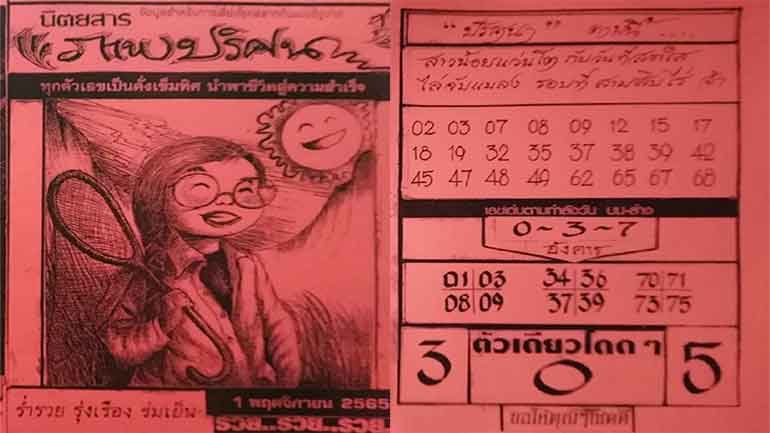 นิตยสาร
ภาพปริศนา
ทุกตัวเลขเป็นดั่งเข็มทิศ นำพาชีวิตสู่ความสำเร็จ
1 พฤศจิกายน 2565
ร่ำรวย รุ่งเรือง ร่มเย็น
รวย..รวย..รวย..
"ปริศนา" ภาพนี้ ....
สาวน้อยแว่นโต กับวันที่สดใส
ไล่จับแมลง รอบที่ สามสิบไร่ จ้า
02 03 07 08 09 12 15 17
18 19 32 35 37 38 39 42
45 47 48 49 62 65 67 68
เลขเด่นตามกำลังวัน บน-ล่าง
0~3~7
อังคาร
01 03 34 36 70 71
08 09 37 39 73 75
ตัวเดียวโดด ๆ
3 0 5
ขอให้คุณๆโชคดี